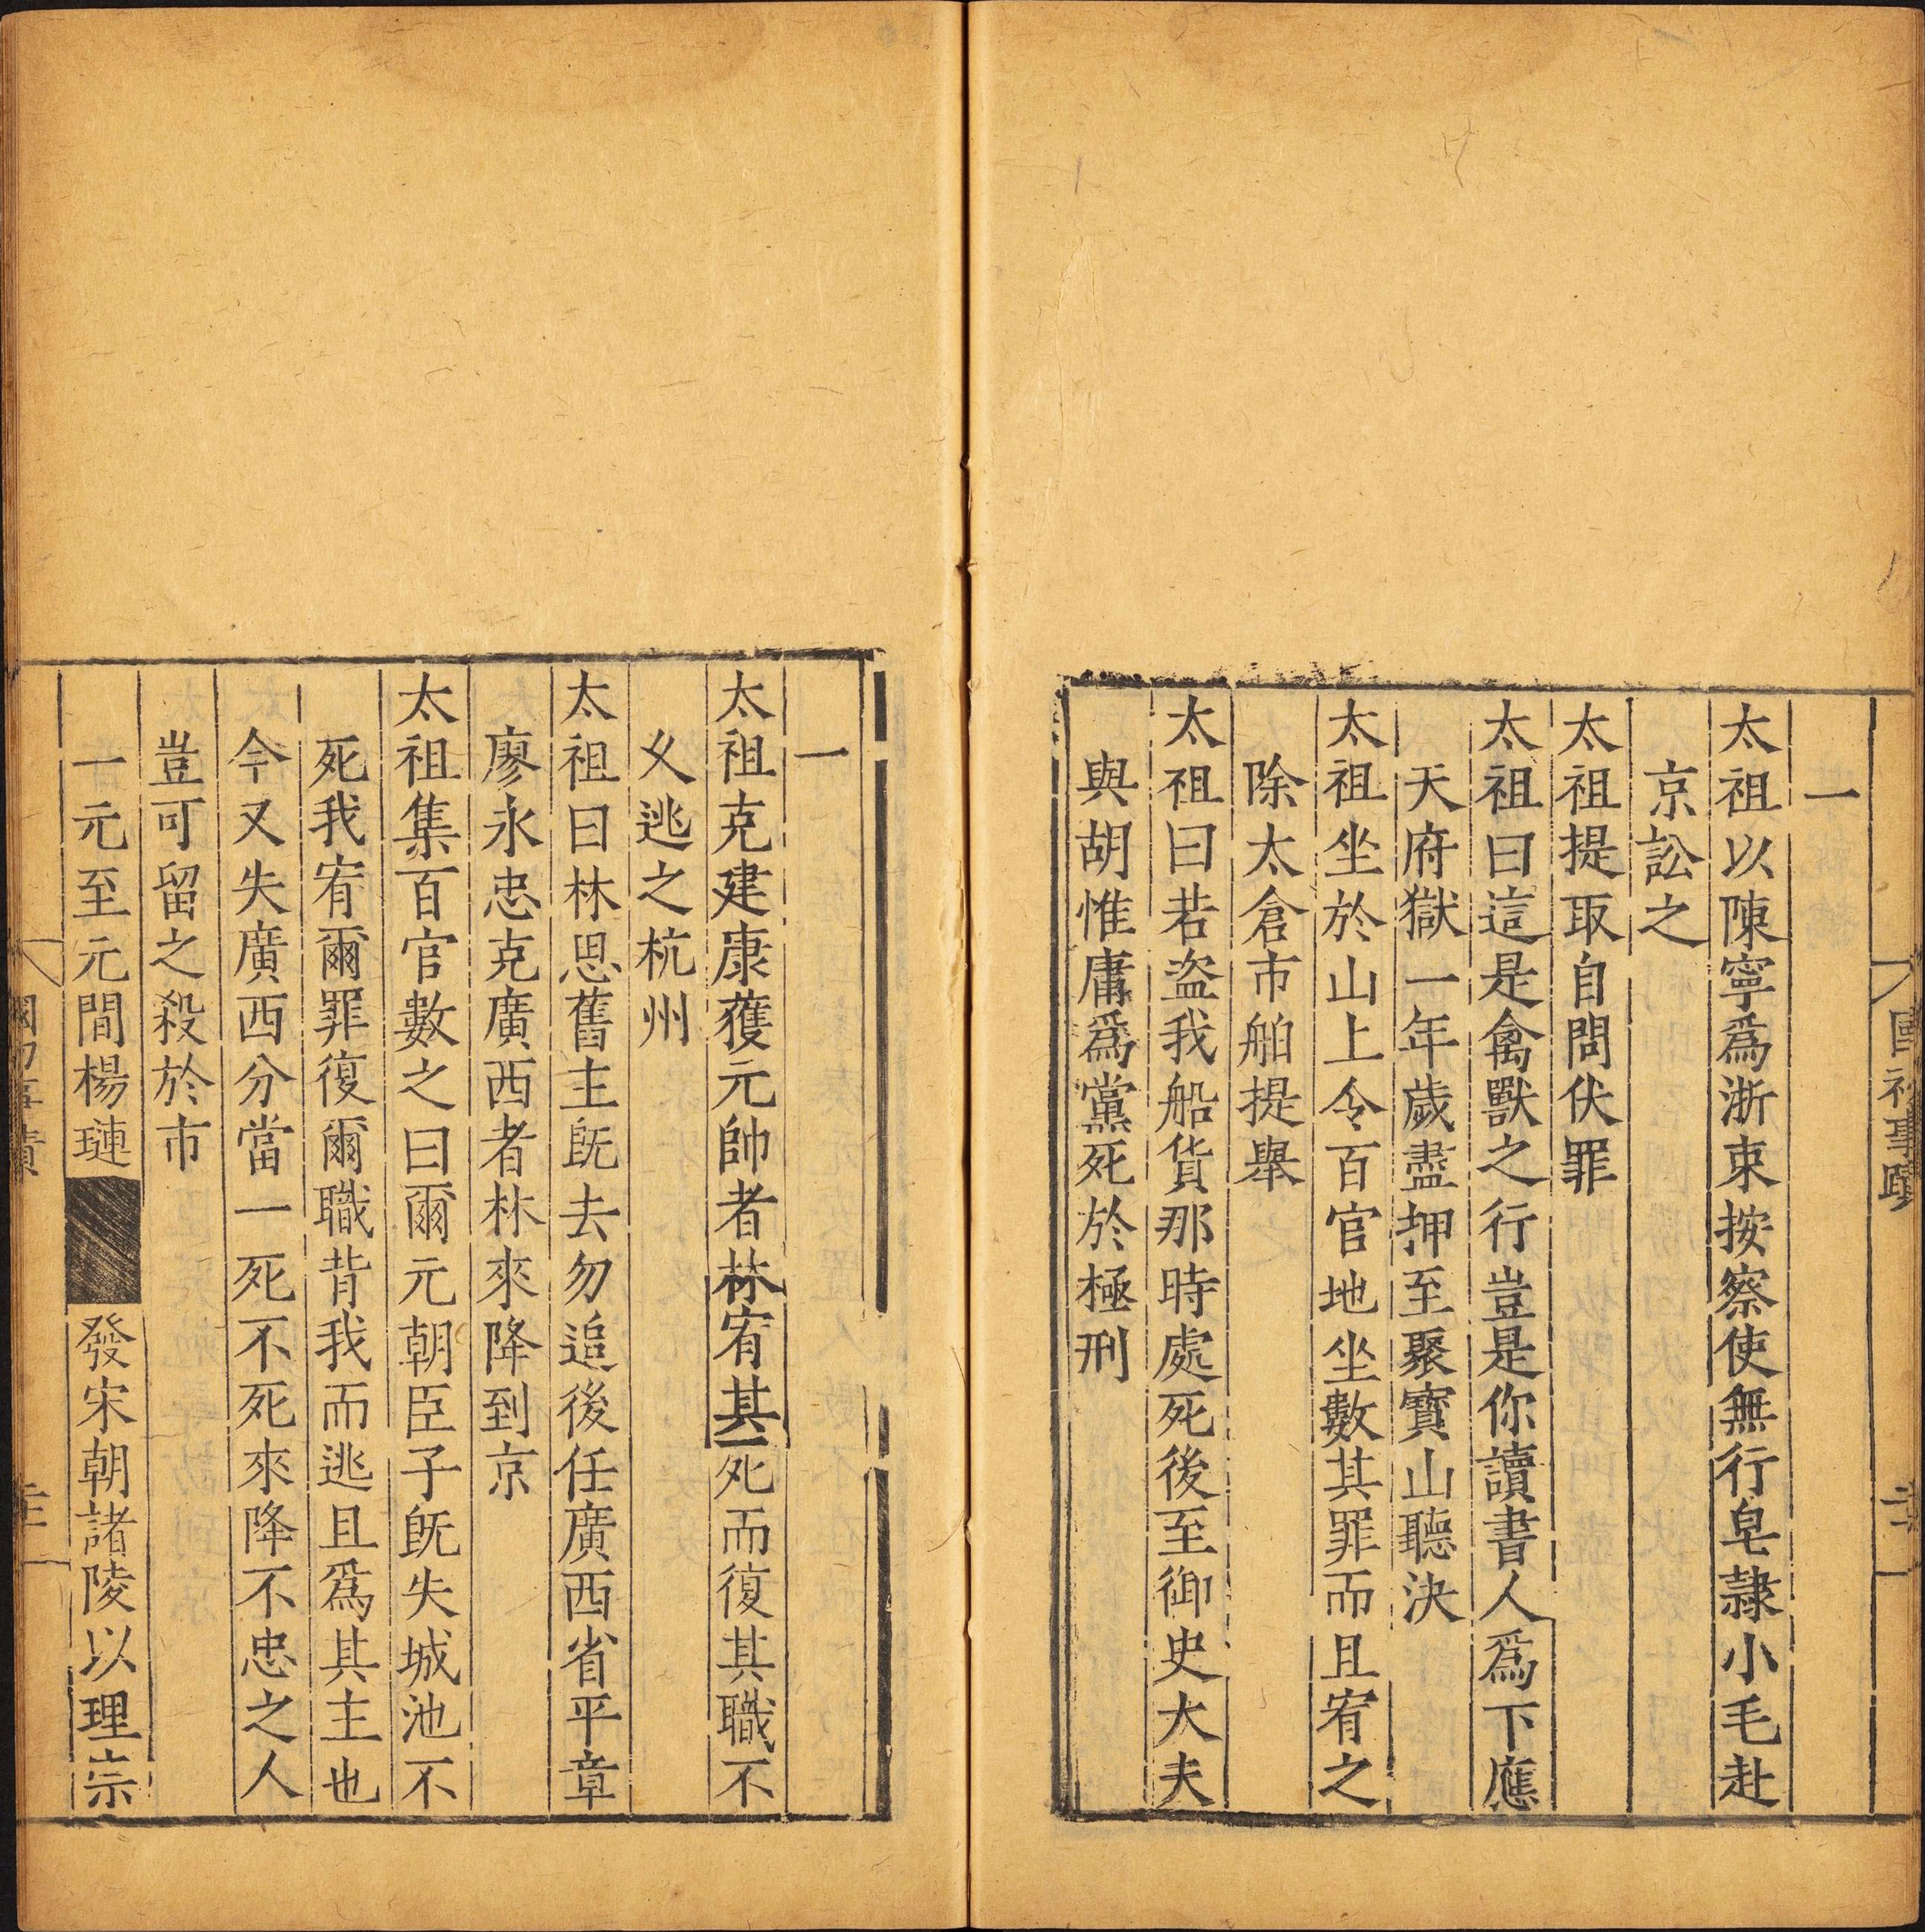 國初事蹟
一
太祖以陳寧爲浙東按察使無行皂隷小毛赴
京訟之
太祖提取自問伏罪
太祖曰這是禽獸之行豈是你讀書人爲下應
天府獄一年歲盡押至聚寶山聽決
太祖坐於山上令百官地坐數其罪而且宥之
除太倉市舶提舉
太祖曰若盗我船貨那時處死後至御史大夫
與胡惟庸爲黨死於極刑
一
太祖克建康獲元帥者林宥其死而復其職不
乆逃之杭州
太祖曰林思舊主旣去勿追後任廣西省平章
廖永忠克廣西者林來降到京
太祖集百官數之曰爾元朝臣子旣失城池不
死我宥爾罪復爾職背我而逃且爲其主也
今又失廣西分當一死不死來降不忠之人
豈可留之殺於市
一元至元間楊璉
發宋朝諸陵以理宗
國初事蹟